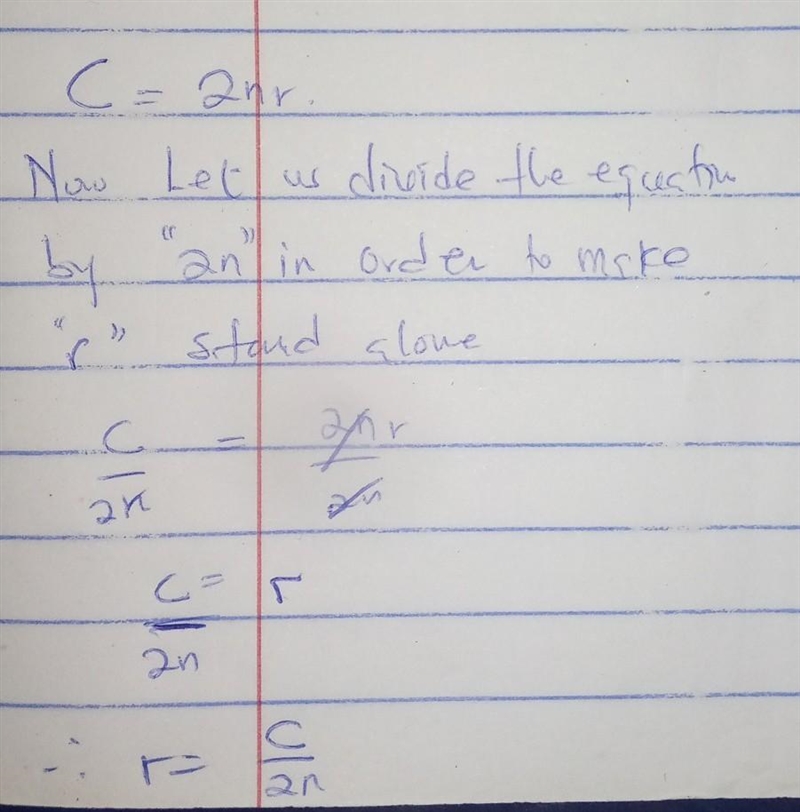 C = 2nr.
Now Let us divide the equation
by "2n" in order to make
"r" stand alone
C/2n = 2nr/2n
C/2n = r
∴ r = C/2n